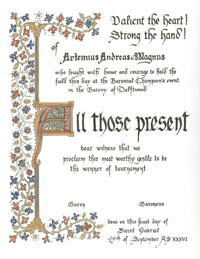 Valient the heart!
Strong the hand!
of Artemius Andreas Magnus
who fought with honor and courage to hold the
field this day at the Baronial Champion's event
in the Barony of
All those present
bear witness that we
proclaim this most worthy gentle to be
the winner of tournament
Baron Baroness
done on this feast day of
Saint Gabriel
of September AS XXXVI